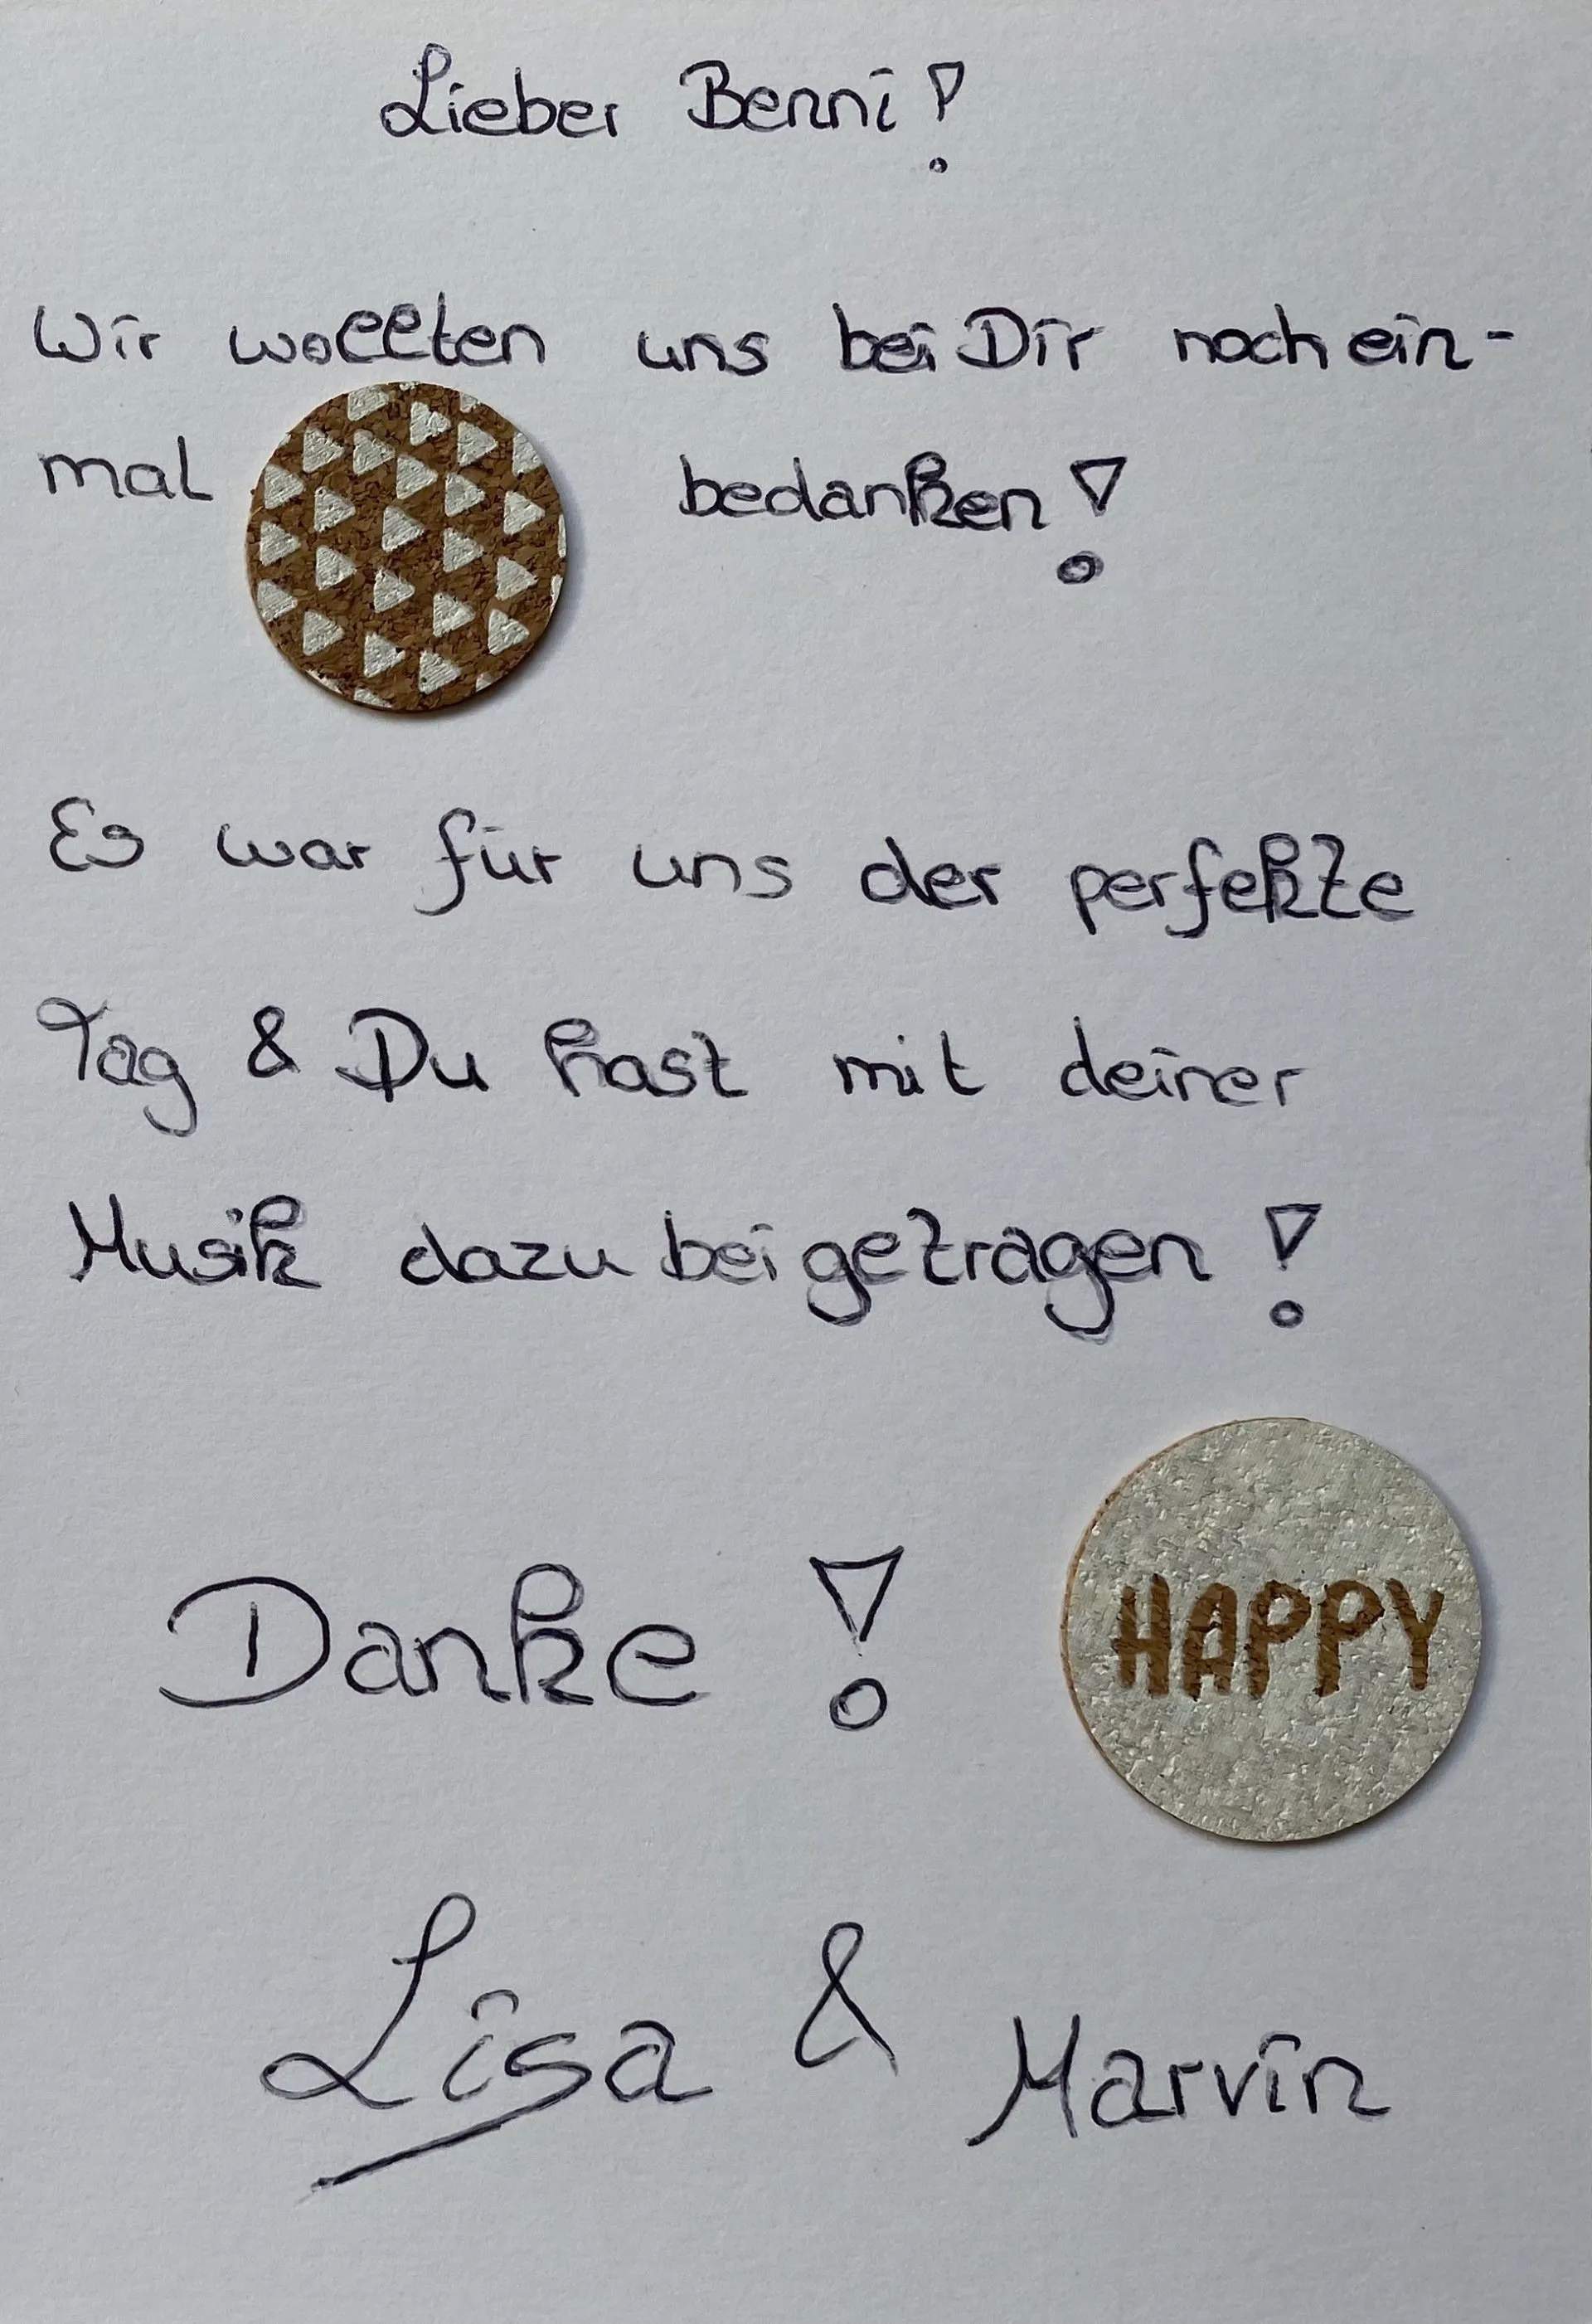 Lieber Benni!
Wir wollten uns bei Dir nochein-
mal bedanken!
Es war für uns der perfekte
Tag & Du hast mit deiner
Musik dazu beigetragen!
Danke!
HAPPY
Lisa & Marvin